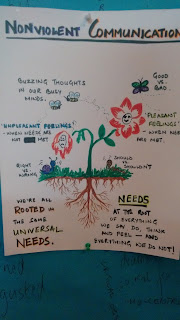 NONVIOLENT COMMUNICATION
BUZZING THOUGHTS
IN OUR BUSY
MINDS.
GOOD
VS.
BAD.
"UNPLEASANT FEELINGS!"
- WHEN NEEDS ARE
NOT MET
"PLEASANT
FEELINGS!"
- WHEN NEEDS
ARE MET.
RIGHT
VS
WRONG
SHOULD VS
SHOULDN'T
WE'RE ALL
ROOTED IN
THE SAME
UNIVERSAL
NEEDS.
NEEDS
AT THE ROOT
OF EVERYTHING
WE SAY, DO, THINK
AND FEEL — AND
EVERYTHING WE DO NOT!